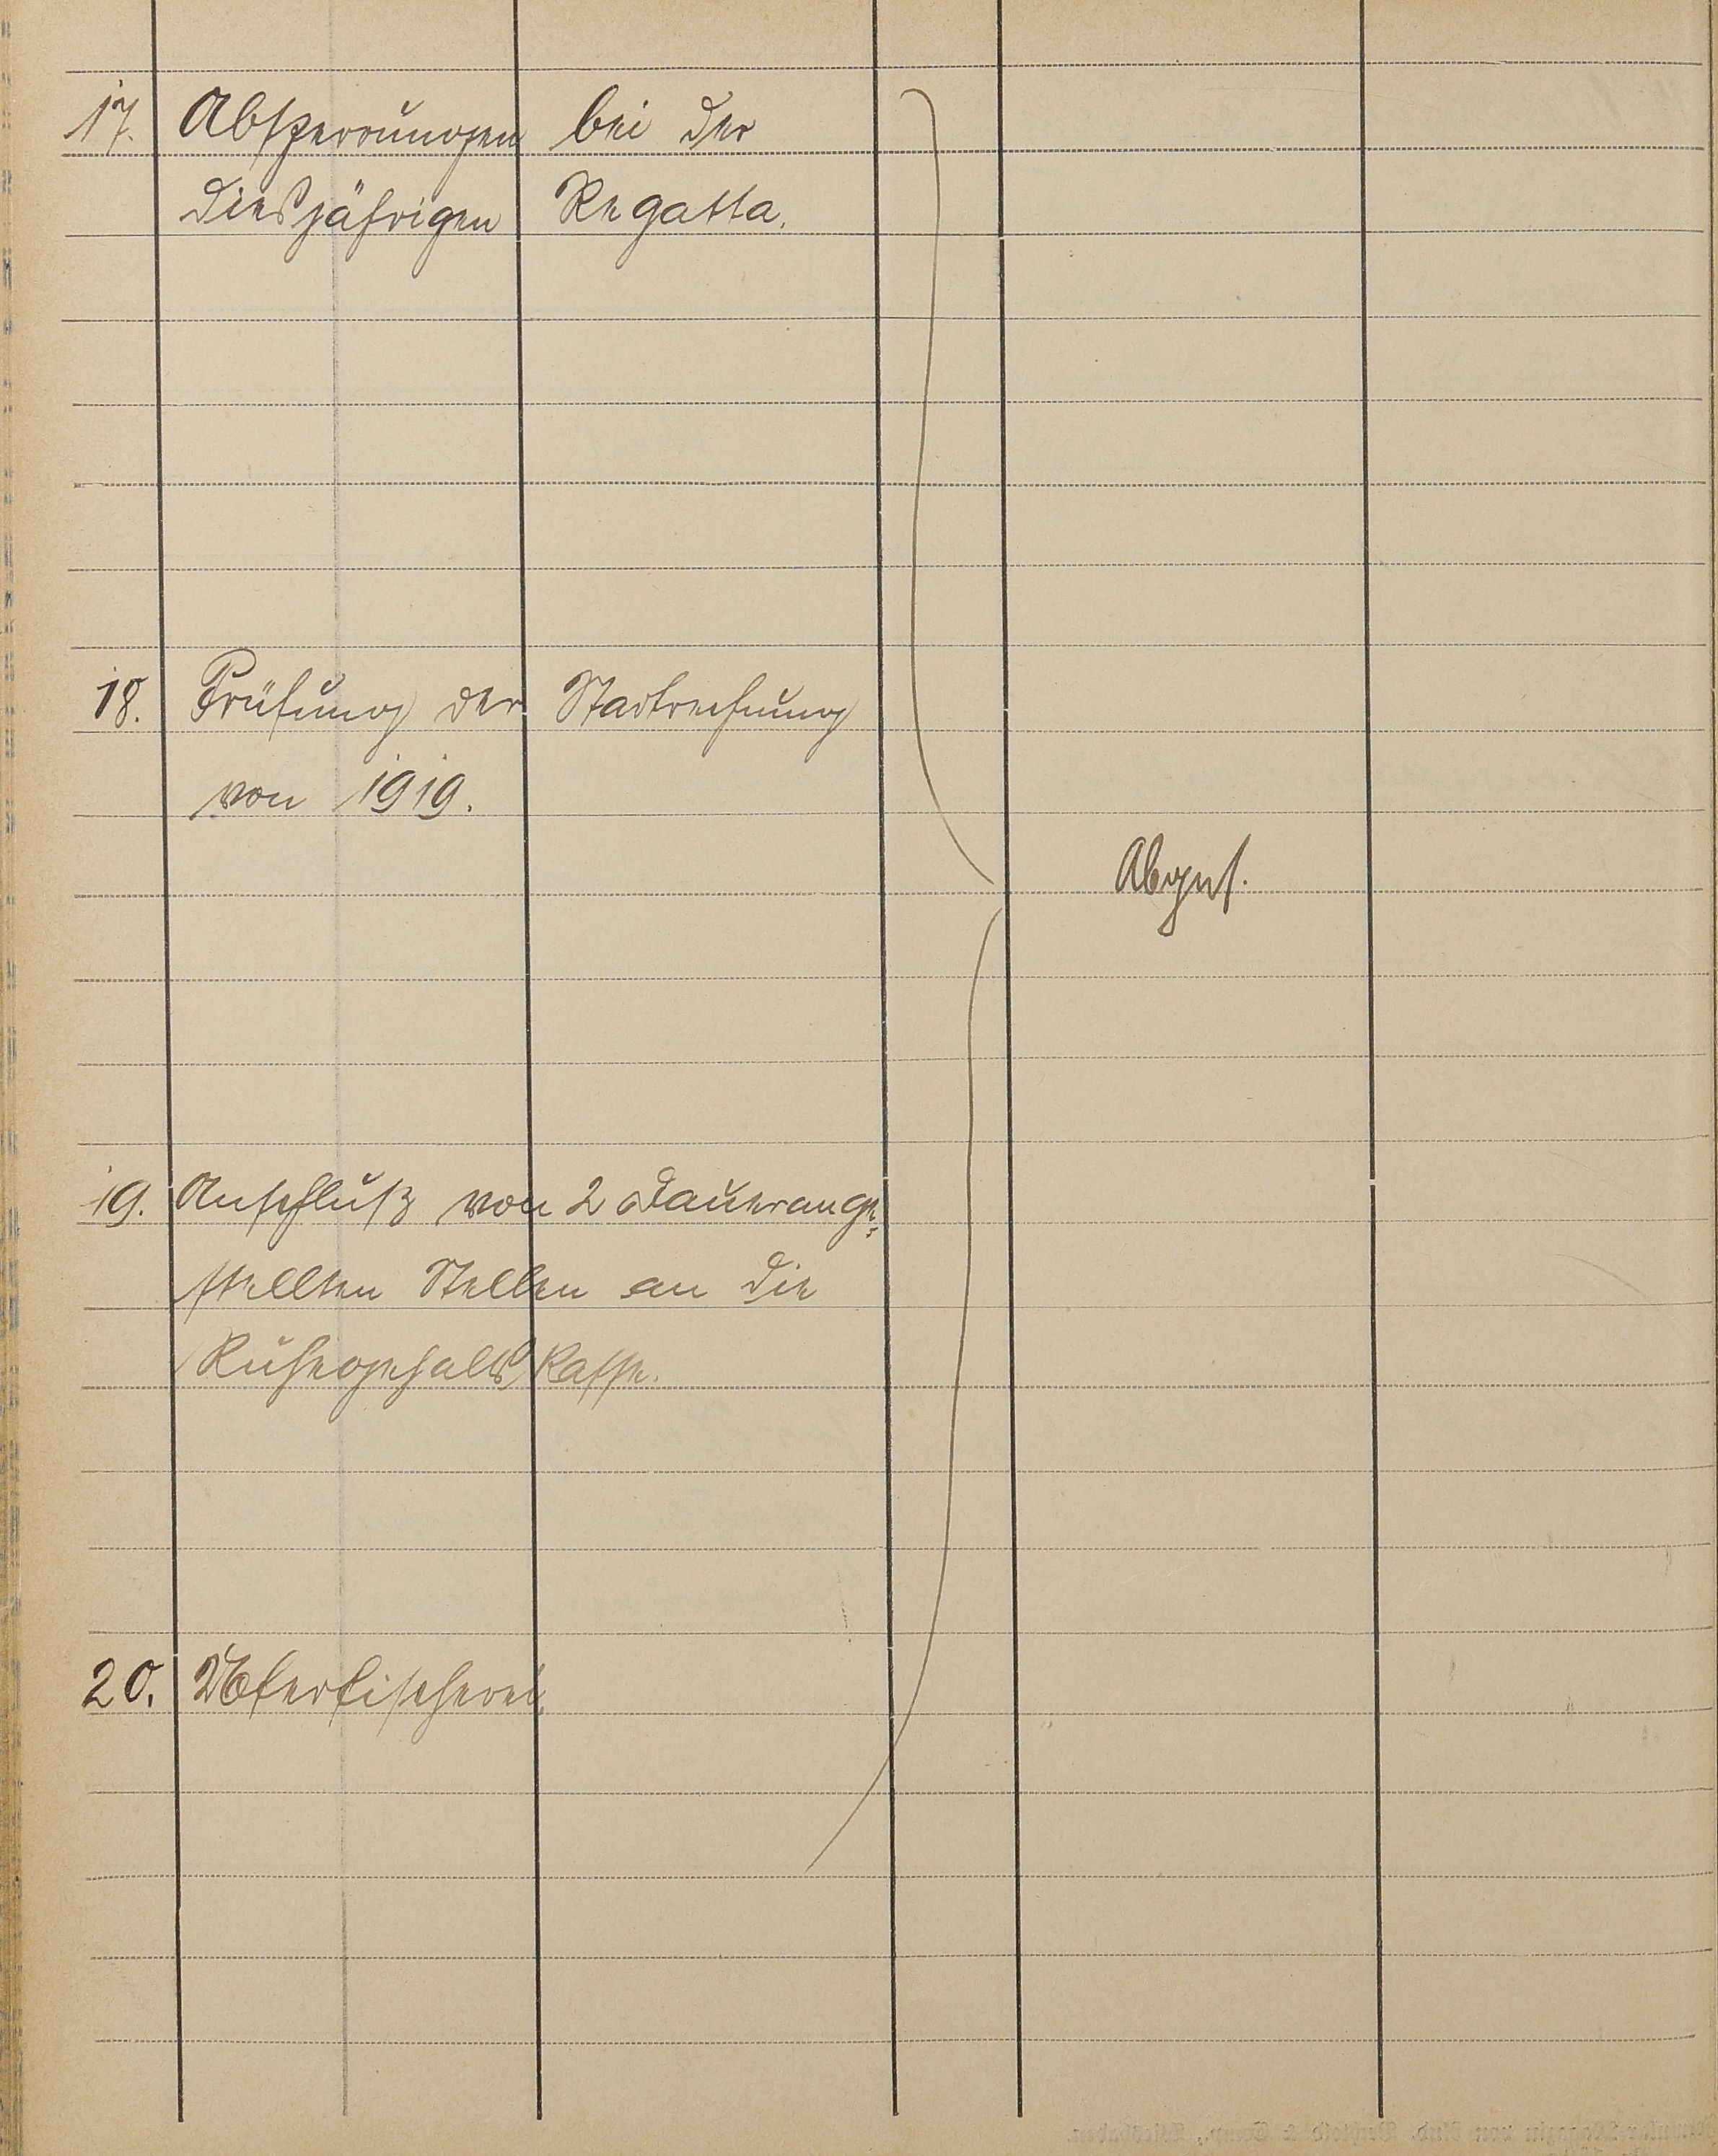 17. Absperrungen bei der
diesjährigen Regatta.
18. Prüfung der Stadtrechnung
von 1919.
Abges.
19. Anschluß von 2 Dauerange-
stellten Stellen an die
Ruhegehaltskasse.
20. Uferfischerei.